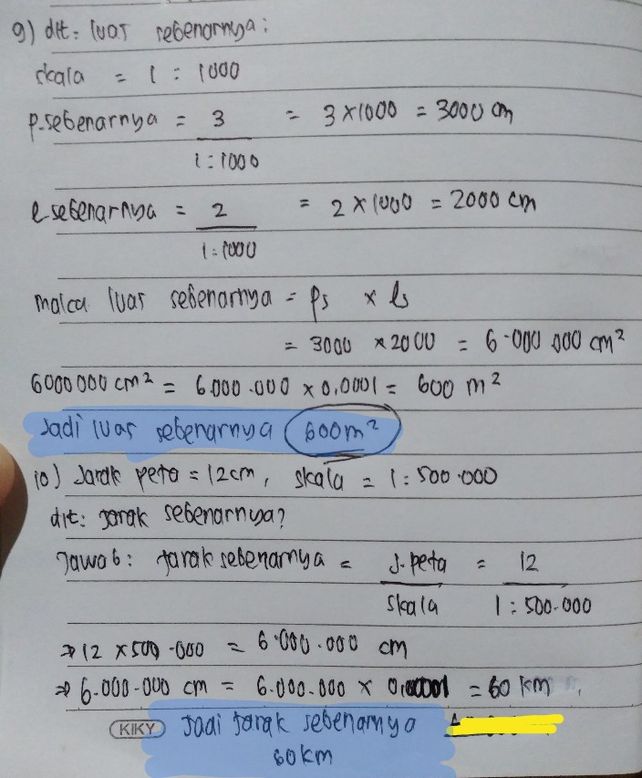 9) dit: luas sebenarnya:
skala = 1 : 1000
p.sebenarnya = 3 / 1:1000 = 3 x 1000 = 3000 cm
l.sebenarnya = 2 / 1:1000 = 2 x 1000 = 2000 cm
maka luas sebenarnya = ps x ls
= 3000 x 2000 = 6.000.000 cm²
6000000 cm² = 6.000.000 x 0,0001 = 600 m²
Jadi luas sebenarnya 600m²
10) Jarak peta = 12cm, skala = 1 : 500.000
dit: jarak sebenarnya?
Jawab: jarak sebenarnya = J.peta / skala = 12 / 1:500.000
⇒ 12 x 500.000 = 6.000.000 cm
⇒ 6.000.000 cm = 6.000.000 x = 60 km
KIKY Jadi jarak sebenarnya
60km